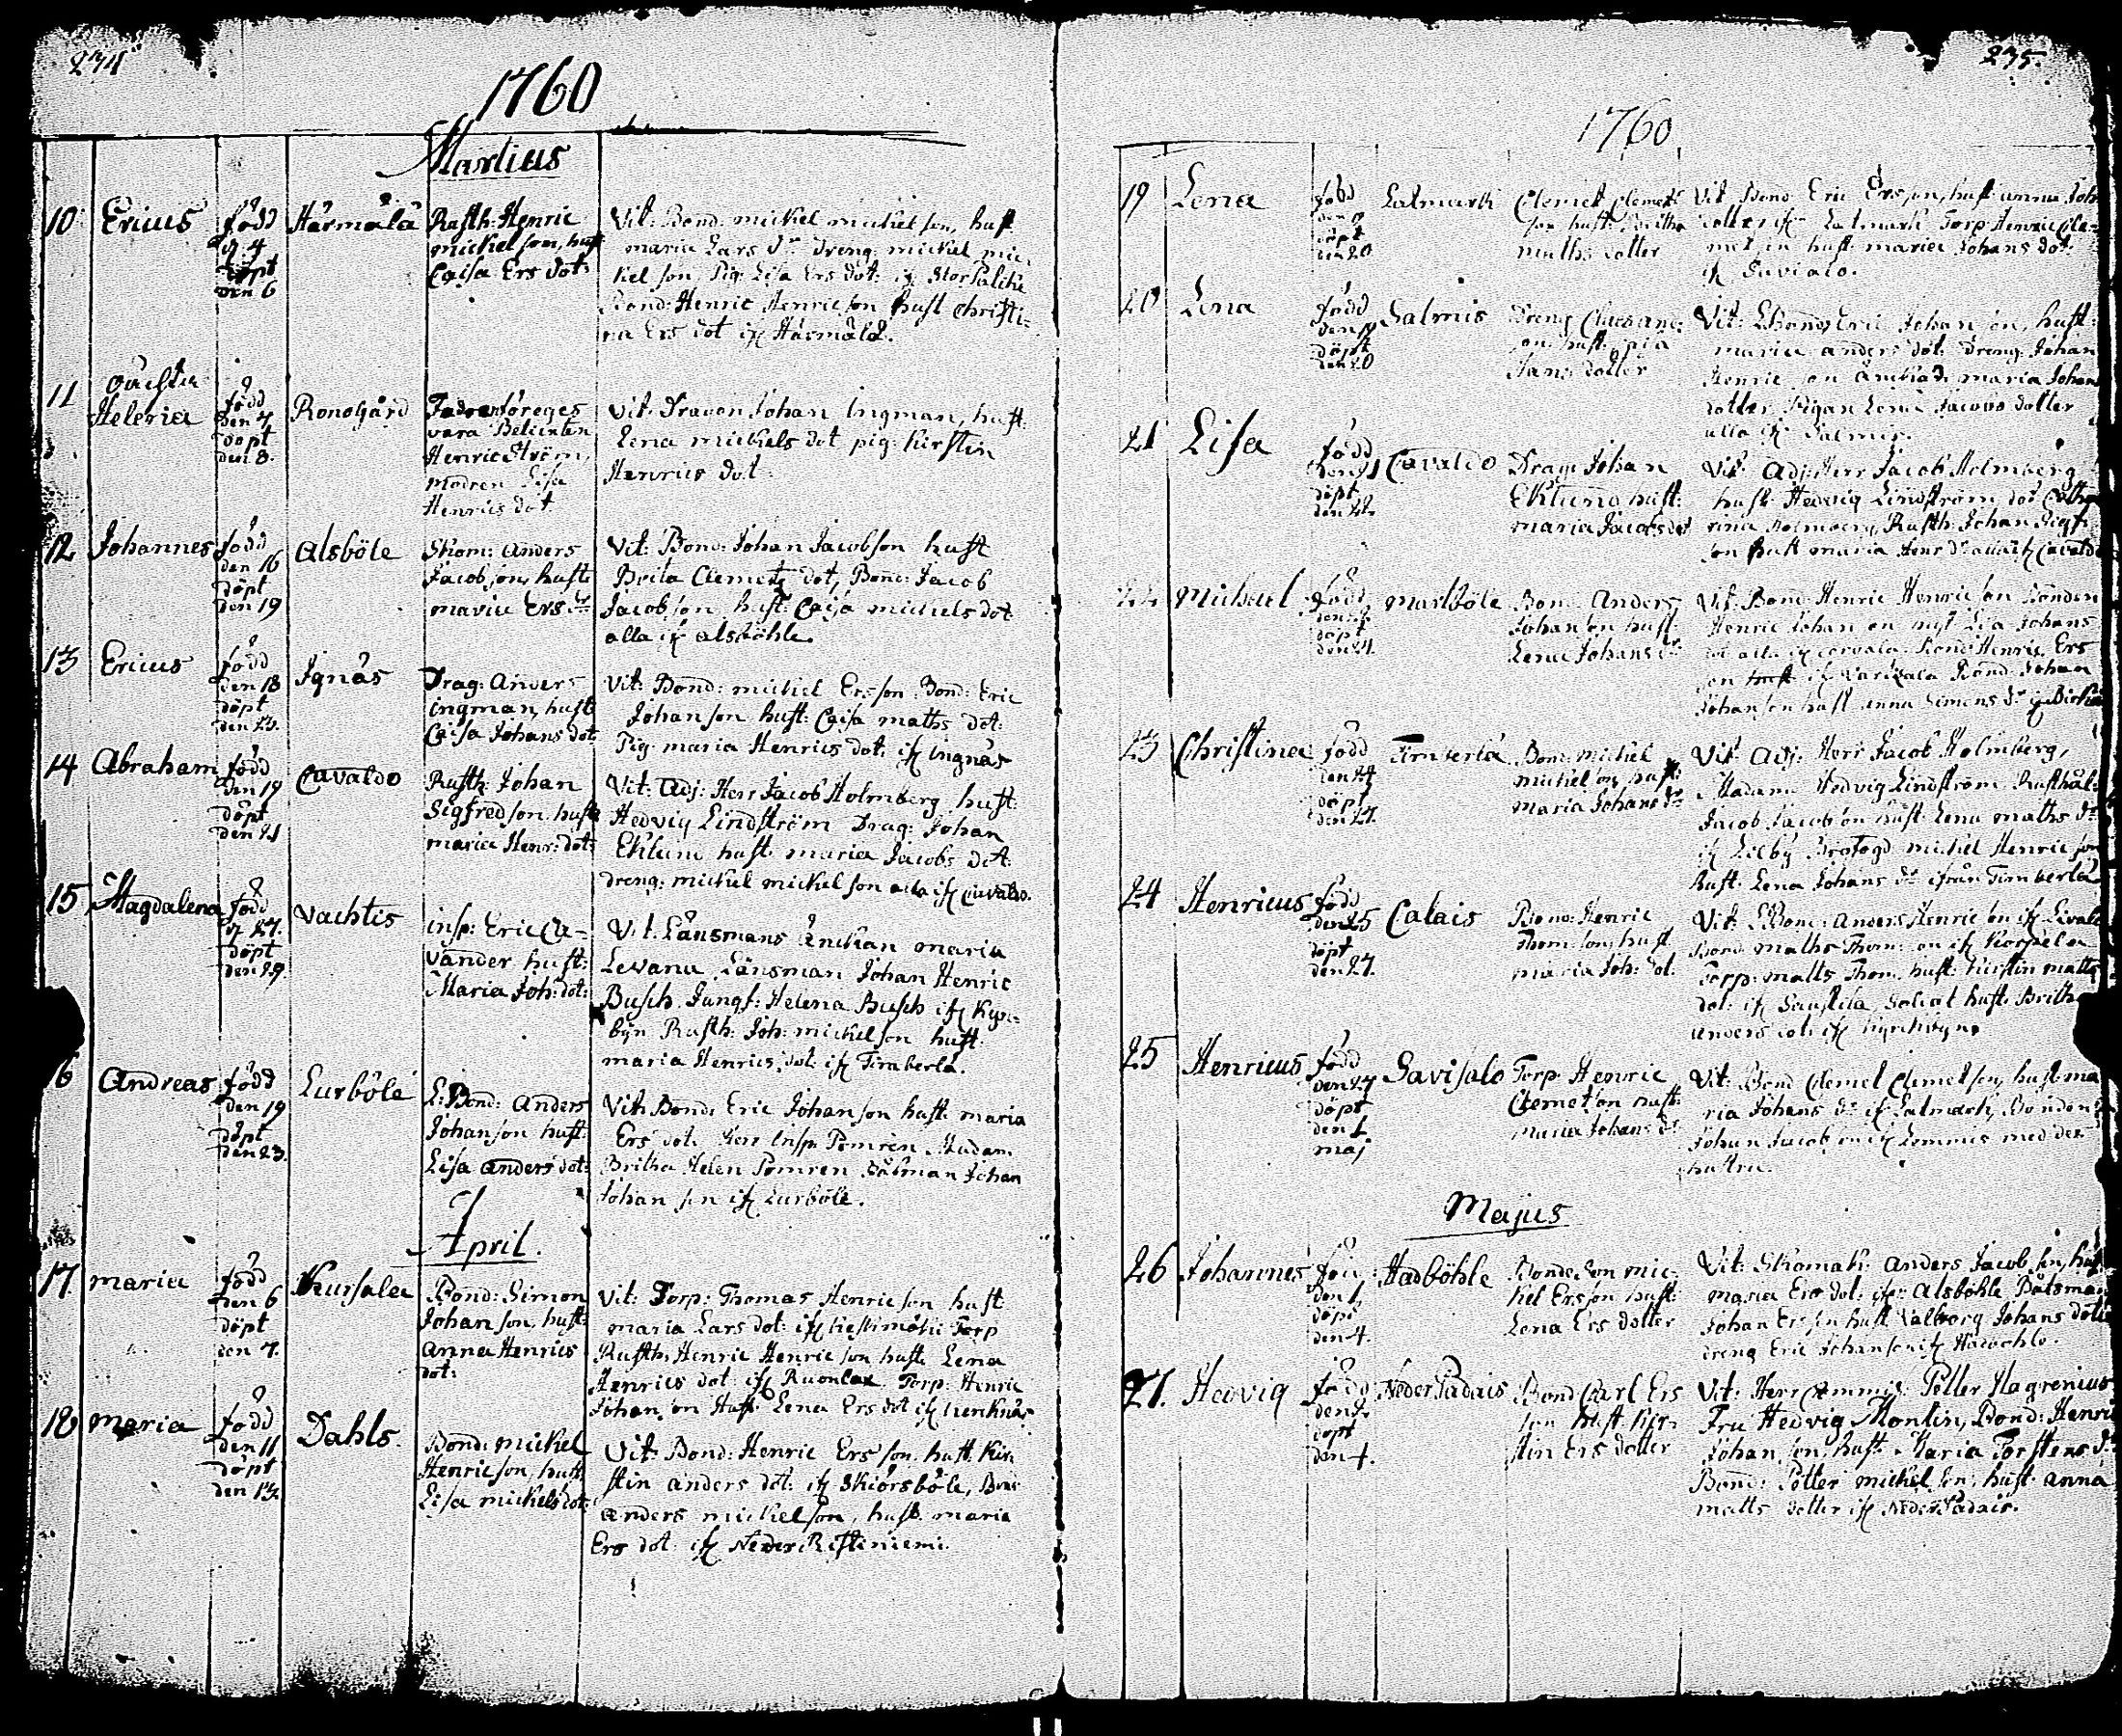 274
1760
Martius
10 Ericus född d 4 döpt den 6 Härmälä
Rusth: Henric
mickelson, hust
Caisa Ers dot:
Vit: Bond: mickel mickelson, hust
maria Lars dr Dreng: mickel mic-
kelson, Pig: Lisa Ers dot: if
Bond: Henric Henricson hust Christi-
na Ers dot if Härmälä.
11 oächta Helena född den 7 döpt den 8. Ronogård
Fadren föreges
vara
Henric Ström,
modren Lisa
Henrics dot
Vit: Dravon Johan Ingman, hust:
Lena mickels dot pig: Kirstin
Henrics dot
12 Johannes född den 16 döpt den 19 Alsböle
Skom: Anders
Jacobson, hust:
maria Ers dr
Vit: Bond: Johan Jacobson hust
Brita Clemets dot, Bond: Jacob
Jacobson, hust: Caisa mickels dot
alla if alsböhle.
13 Ericus född den 18 döpt den 23. Ignäs
Drag: Anders
ingman, hust
Caisa Johans dot:
Vit: Bond: mickel Ersson Bond: Eric
Johanson hust: Caisa maths dot:
Pig: maria Henrics dot: if ingnäs
14 Abraham född den 19 döpt den 21 Cavaldo
Rusth: Johan
Sigfredson, hust
maria Henr: dot:
Vit: Adj: Herr Jacob Holmberg, hust:
Hedvig Lindström Drag: Johan
Eklund hust: maria Jacobs dot:
dreng: mickel mickelson alla if Cavaldo.
15 Magdalena född d 27. döpt den 29. Vachtis
insp: Eric Ca-
vander hust:
Maria Joh: dot:
Vit: Länsmans Änckan maria
Levana, Länsman Johan Henric
Busch Jungf: Helena Busch if Kyrc-
byn Rusth: Joh: mickelson hust:
maria Henrics dot if Timberla.
16 Andreas född den 19 döpt den 23. Lurböle
L: Bond: Anders
Johanson hust:
Lisa anders dot:
Vit: Bond: Eric Johanson hust: maria
Ers dot: Herr Insp: Pomren Madam
Britha Helen Pomren Båtsman Johan
Johanson if Lurböle.
April.
17. maria född den 6 döpt den 7. Kursalea
Bond: Simon
Johanson, hust:
anna Henrics
dot:
Vit: Torp: Thomas Henricson hust
maria Lars dot: if Torp
Rusth: Henric Henricson hust: Lena
Henrics dot: if Torp: Henric
Johanson Hust: Lena Ers dot if
18 maria född den 11 döpt den 13. Dahls.
Bond: mickel
Henricson, hust
Lisa mickels dot:
Vit: Bond: Henric Ersson hust: Kir-
stin anders dot: if Skiörsböle, Bond:
anders mickelson, hust: maria
Ers dot: if Neder Ristiniemi.
275.
1760.
19 Lena född den döpt den 20 Latmark
Clemet Clemets
son hust: Britha
maths dotter
Vit: Bond: Eric Ersson, hust anna Joh
dotter if Latmark Torp Henric Cle-
metson hust: maria Johans dot:
if Savialo.
20 Lena född den 19 döpt den 20 Salmis
Dreng Clas
son hust:
Hans dotter
Vit: L:bond: Eric Johanson, hust:
maria anders dot: Dreng: Johan
Henricson Änckan maria Johans
dotter, Pigan Lena Jacobs dotter
alla if Salmis.
21 Lisa född den 21 döpt den 22. Cavaldo
Drag: Johan
Eklund hust:
maria Jacobs dot
Vit: Adj: Herr Jacob Holmberg
hust: Hedvig Lindström dot Catha-
rina Holmberg, Rusth: Johan Sigf:
son hust maria Henr dr alla if Cavaldo
22 Michael född den döpt den 24. Marlböle
Bond: Anders
Johanson hust:
Lena Johans dr
Vit: Bond: Henric Henricson Bonden
Henric Johanson hust Lisa Johans
dot alla if Bond: Henric Ers
son if Bond: Johan
Johanson hust anna Simons dr if
23 Christina född den 24 döpt den 27. Timberla
Bond: mickel
mickelson hust:
maria Johans dr
Vit: Adj: Herr Jacob Holmberg,
Madam Hedvig Lindström Rusthål:
Jacob Jacobson hust: Lena maths dr
if Lilby Brofogd mickel Henricson
hust: Lena Johans dr ifrån Timberla
24 Henricus född den 25 döpt den 27. Calais
Bond: Henric
Thomson, hust
maria Joh: dot.
Vit: L:Bond: Anders Henricson if
Bond: maths Thomson if
Torp: matts Thom: hust: Kirstin matts
dot: if Soldat hust: Brith
anders dot: if Kyrckbyn.
25 Henricus född den 27 döpt den 1 maj Savisalo
Torp: Henric
Clemetson hust:
maria Johans dr
Vit: Bond Clemet Clemetson, hust: ma
ria Johans dr if Latmark, Bonden
Johan Jacobson if Lemmis med des
hustru.
Majus
26 Johannes född den 1, döpt den 4. Hadböhle
Bondeson mic-
kel Ersson hust:
Lena Ers dotter
Vit: Skomak: anders Jacobson, hust
maria Ers dot: ifr: Alsböhle Båtsman
Johan Ersson hust Valborg Johans dotter
dreng Eric Johanson if Hadböhle.
27. Hedvig född den döpt den 4. Neder Padais
Bond Carl Ers
son hust: Kir-
stin Ers dotter
Vit: Herr Petter Hagrenius
Fru Hedvig Montin, Bond: Henric
Johanson, hust: Maria Torstens dr
Bond: Petter mickelson, hust: anna
matts dotter if Neder Padais.